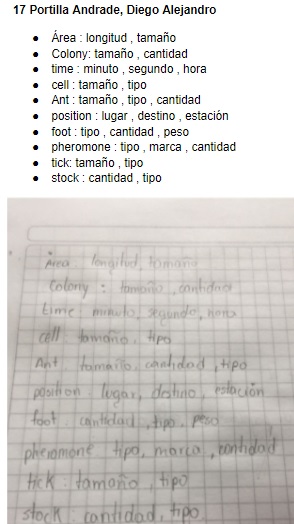 17 Portilla Andrade, Diego Alejandro
• Área : longitud , tamaño
• Colony: tamaño , cantidad
• time : minuto , segundo , hora
• cell : tamaño , tipo
• Ant : tamaño , tipo , cantidad
• position : lugar , destino , estación
• foot : tipo , cantidad , peso
• pheromone : tipo , marca , cantidad
• tick: tamaño , tipo
• stock : cantidad , tipo
Area longitud, tamaño
Colony : tamaño , cantidad
time: minuto, segundo, hora
cell tamaño, tipo
Ant tamaño, cantidad , tipo
position lugar, destino, estación
foot cantidad , tipo, peso
pheromone tipo, marca , cantidad
tick : tamaño , tipo
stock : cantidad, tipo